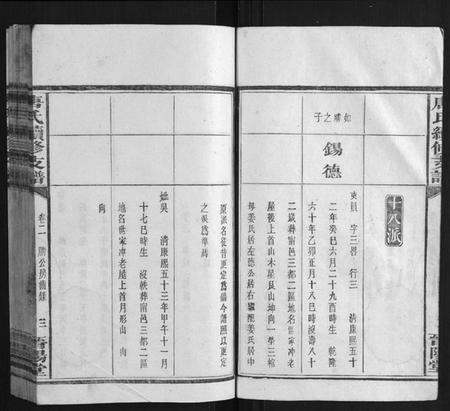 唐氏續修支譜
晉陽堂
十八派
如璿之子
錫德
字三畧 行三 清康熙五十
二年癸巳六月二十九酉時生 乾隆
六十年乙卯正月十八巳時沒壽八十
二歲葬甯邑三都二區地名世家冲老
屋後上首山木星艮山坤向一塋三棺
母姜氏居左德公居右 姜氏居中
原派名從昔更定爲錫今譜照以更定
之派爲準
姚吳 清康熙五十三年甲午十一月
十七巳時生 沒 葬甯邑三都二區
地名世家冲老屋上首月形山 向
向
唐氏續修支譜
卷二
三
晉陽堂